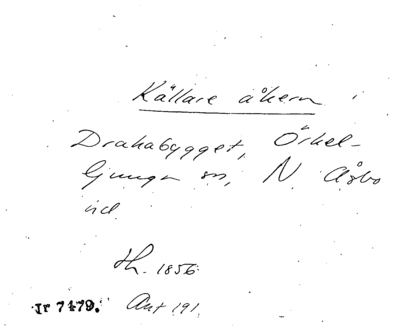 Källare åkern
Drakabygget, Örkel-
ljunga sn, N Åsbo
hd.
Lh. 1856
Jr 7479. Ant 191.